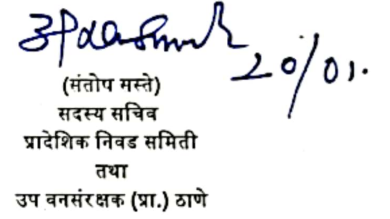 20/01.
(संतोष मस्ते)
सदस्य सचिव
प्रादेशिक निवड समिती
तथा
उप वनसंरक्षक (प्रा.) ठाणे